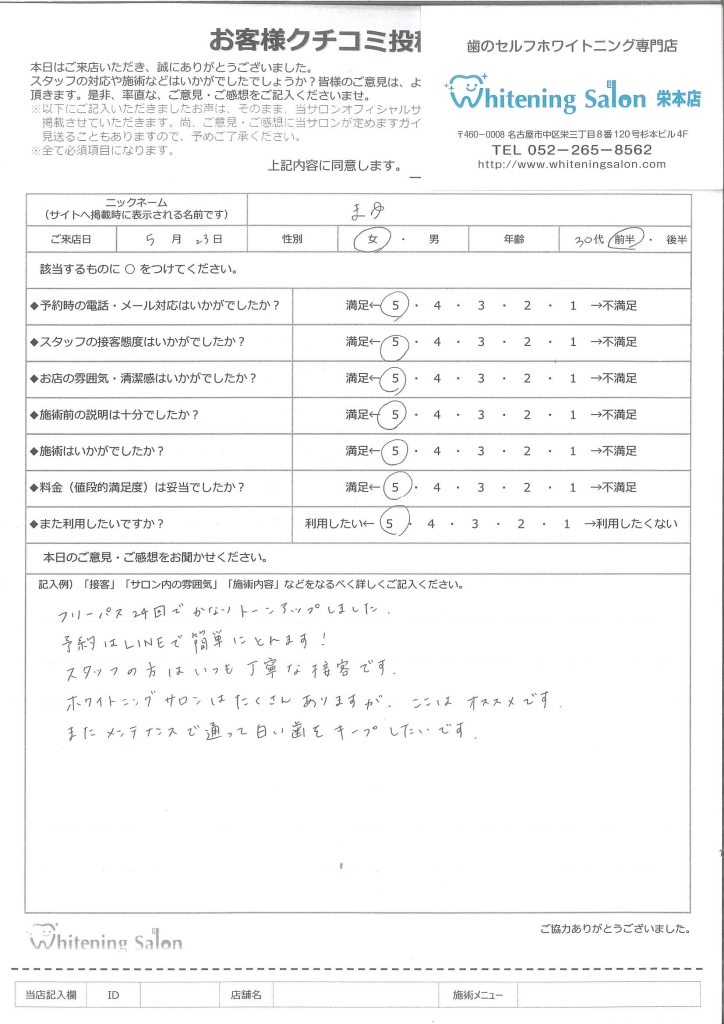 お客様クチコミ投稿
歯のセルフホワイトニング専門店
Whitening Salon 栄本店
〒460-0008 名古屋市中区栄三丁目8番120号杉本ビル4F
TEL 052-265-8562
http://www.whiteningsalon.com
本日はご来店いただき、誠にありがとうございました。
スタッフの対応や施術などはいかがでしたでしょうか？皆様のご意見は、よ
頂きます。是非、率直な、ご意見・ご感想をご記入くださいませ。
※以下にご記入いただきましたお声は、そのまま、当サロンオフィシャルサ
掲載させていただきます。尚、ご意見・ご感想に当サロンが定めますガイ
見送ることもありますので、予めご了承ください。
※全て必須項目になります。
上記内容に同意します。
ニックネーム
（サイトへ掲載時に表示される名前です） まゆ
ご来店日 5 月 23 日 性別 女 ・ 男 年齢 30 代 前半 ・ 後半
該当するものに ○ をつけてください。
◆予約時の電話・メール対応はいかがでしたか？ 満足← 5 ・ 4 ・ 3 ・ 2 ・ 1 →不満足
◆スタッフの接客態度はいかがでしたか？ 満足← 5 ・ 4 ・ 3 ・ 2 ・ 1 →不満足
◆お店の雰囲気・清潔感はいかがでしたか？ 満足← 5 ・ 4 ・ 3 ・ 2 ・ 1 →不満足
◆施術前の説明は十分でしたか？ 満足← 5 ・ 4 ・ 3 ・ 2 ・ 1 →不満足
◆施術はいかがでしたか？ 満足← 5 ・ 4 ・ 3 ・ 2 ・ 1 →不満足
◆料金（値段的満足度）は妥当でしたか？ 満足← 5 ・ 4 ・ 3 ・ 2 ・ 1 →不満足
◆また利用したいですか？ 利用したい← 5 ・ 4 ・ 3 ・ 2 ・ 1 →利用したくない
本日のご意見・ご感想をお聞かせください。
記入例）「接客」「サロン内の雰囲気」「施術内容」などをなるべく詳しくご記入ください。
フリーパス24回でかなりトーンアップしました.
予約はLINEで簡単にとれます!
スタッフの方はいつも丁寧な接客です.
ホワイトニングサロンはたくさんありますが、ここはオススメです.
またメンテナンスで通って白い歯をキープしたいです.
Whitening Salon
ご協力ありがとうございました。
当店記入欄 ID 店舗名 施術メニュー